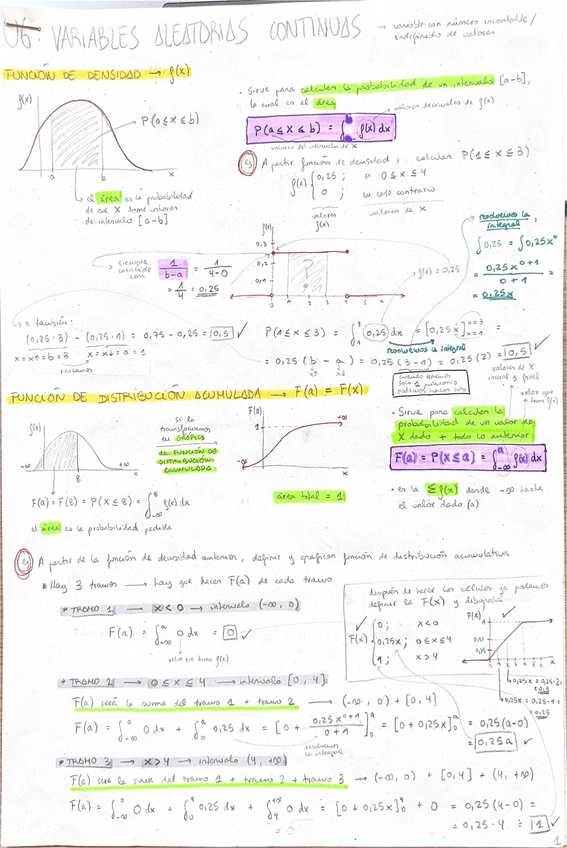 U6. VARIABLES ALEATORIAS CONTINUAS → variable con número incontable/
indefinido de valores
FUNCIÓN DE DENSIDAD → f(x)
f(x)
P(a≤x≤b)
a b x
→ el área es la probabilidad
de que X tome valores
del intervalo [a-b]
• Sirve para calcular la probabilidad de un intervalo [a-b],
la cual es el área
P(a≤X≤b) = ∫ f(x) dx
valores del intervalo de X
Ej A partir función de densidad, calcular P(1≤X≤3)
f(x) { 0,25 ; si 0≤x≤4
0 ; en caso contrario
valores f(x)
valores de X
siempre coincide con
1/(b-a) = 1/(4-0)
= 1/4 = 0,25
f(x)
0,3
0,2
0,1
?
0 1 2 3 4 5 x
f(x) = 0,25
resolvemos la integral:
∫0,25 = ∫0,25x⁰
= 0,25x⁰⁺¹/(0+1) =
= 0,25x
→ o también:
(0,25·3) - (0,25·1) = 0,75 - 0,25 = 0,5 ✓
x=x↑=b=3 x=x↓=a=1
restamos
P(1≤x≤3) = ∫₁³ 0,25 dx = [0,25x]ₓ₌₁ˣ⁼³ =
resolvemos la integral
= 0,25(b - a) = 0,25(3-1) = 0,25(2) = 0,5 ✓
valores de X
inicial y final
FUNCIÓN DE DISTRIBUCIÓN ACUMULADA → F(a) = F(x)
f(x)
-∞ 8 +∞ x
si lo
transformamos
en GRÁFICA
de FUNCIÓN DE
DISTRIBUCIÓN
ACUMULADA
F(a)
1
+∞
-∞
x
• Sirve para calcular la
probabilidad de un valor de
X dado + todo lo anterior
valor que
toma f(x)
F(a) = P(X≤a) = ∫₋∞ᵃ f(x) dx
F(a) = F(8) = P(X≤8) = ∫₋∞⁸ f(x) dx
el área es la probabilidad pedida
área total = 1
• es la Σf(x) donde -∞ hasta
el valor dado (a)
Ej A partir de la función de densidad anterior, definir y graficar función de distribución acumulativa
• Hay 3 tramos → hay que hacer F(a) de cada tramo
* TRAMO 1 → x<0 → intervalo (-∞, 0)
F(a) = ∫₋∞ᵃ 0 dx = 0 ✓
valor que toma f(x)
después de hacer los cálculos ya podemos
definir la F(x) y dibujarla
F(x) { 0 ; x<0
0,25x ; 0≤x≤4
1 ; x>4
F(x)
1
0,50
0,25
0 1 2 3 4 x
0,25x = 0,25·2 =
0,5
0,25x = 0,25·1 =
0,25
* TRAMO 2 → 0≤x≤4 → intervalo [0, 4]
F(a) será la suma del tramo 1 + tramo 2 → (-∞, 0) + [0, 4]
F(a) = ∫₋∞⁰ 0 dx + ∫₀ᵃ 0,25 dx = [0 + 0,25x⁰⁺¹/(0+1)]₀ᵃ = [0 + 0,25x]₀ᵃ = 0,25(a-0)
= 0,25a ✓
resolvemos
la integral
* TRAMO 3 → x>4 → intervalo (4, +∞)
F(a) será la suma del tramo 1 + tramo 2 + tramo 3 → (-∞, 0) + [0, 4] + (4, +∞)
F(a) = ∫₋∞⁰ 0 dx + ∫₀⁴ 0,25 dx + ∫₄⁺∞ 0 dx = [0 + 0,25x]₀⁴ + 0 = 0,25(4-0) =
= 0
= 0,25·4 = 1 ✓
1